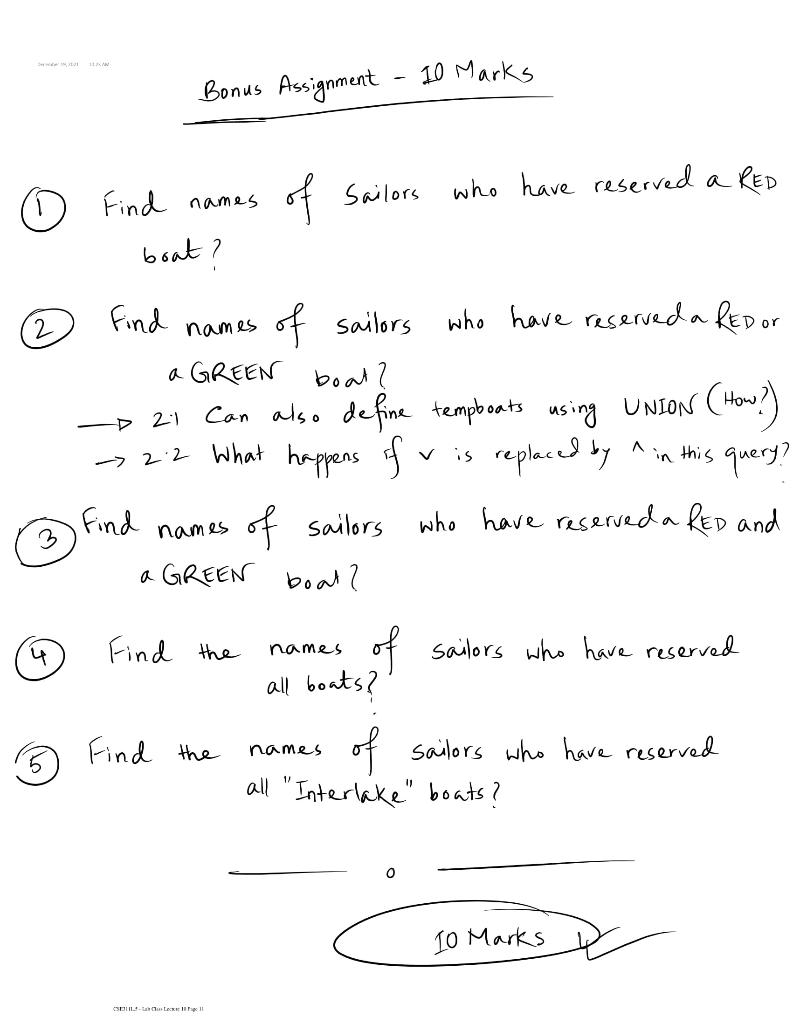 December 19, 2021 11:25 AM
Bonus Assignment - 10 Marks
① Find names of Sailors who have reserved a RED
boat?
② Find names of sailors who have reserved a RED or
a GREEN boat?
→ 2.1 Can also define tempboats using UNION (How?)
→ 2.2 What happens if v is replaced by ^ in this query?
③ Find names of sailors who have reserved a RED and
a GREEN boat?
④ Find the names of sailors who have reserved
all boats?
⑤ Find the names of sailors who have reserved
all "Interlake" boats?
o
10 Marks
CSE311L.5 - Lab Class Lecture 10 Page 11